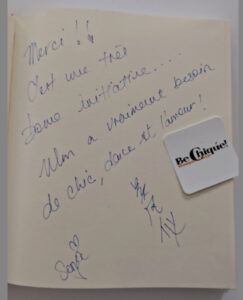 Merci !!
C'est une très
bonne initiative....
Ulm a vraiment besoin
de chic, dance et l'amour !
Be Chique!